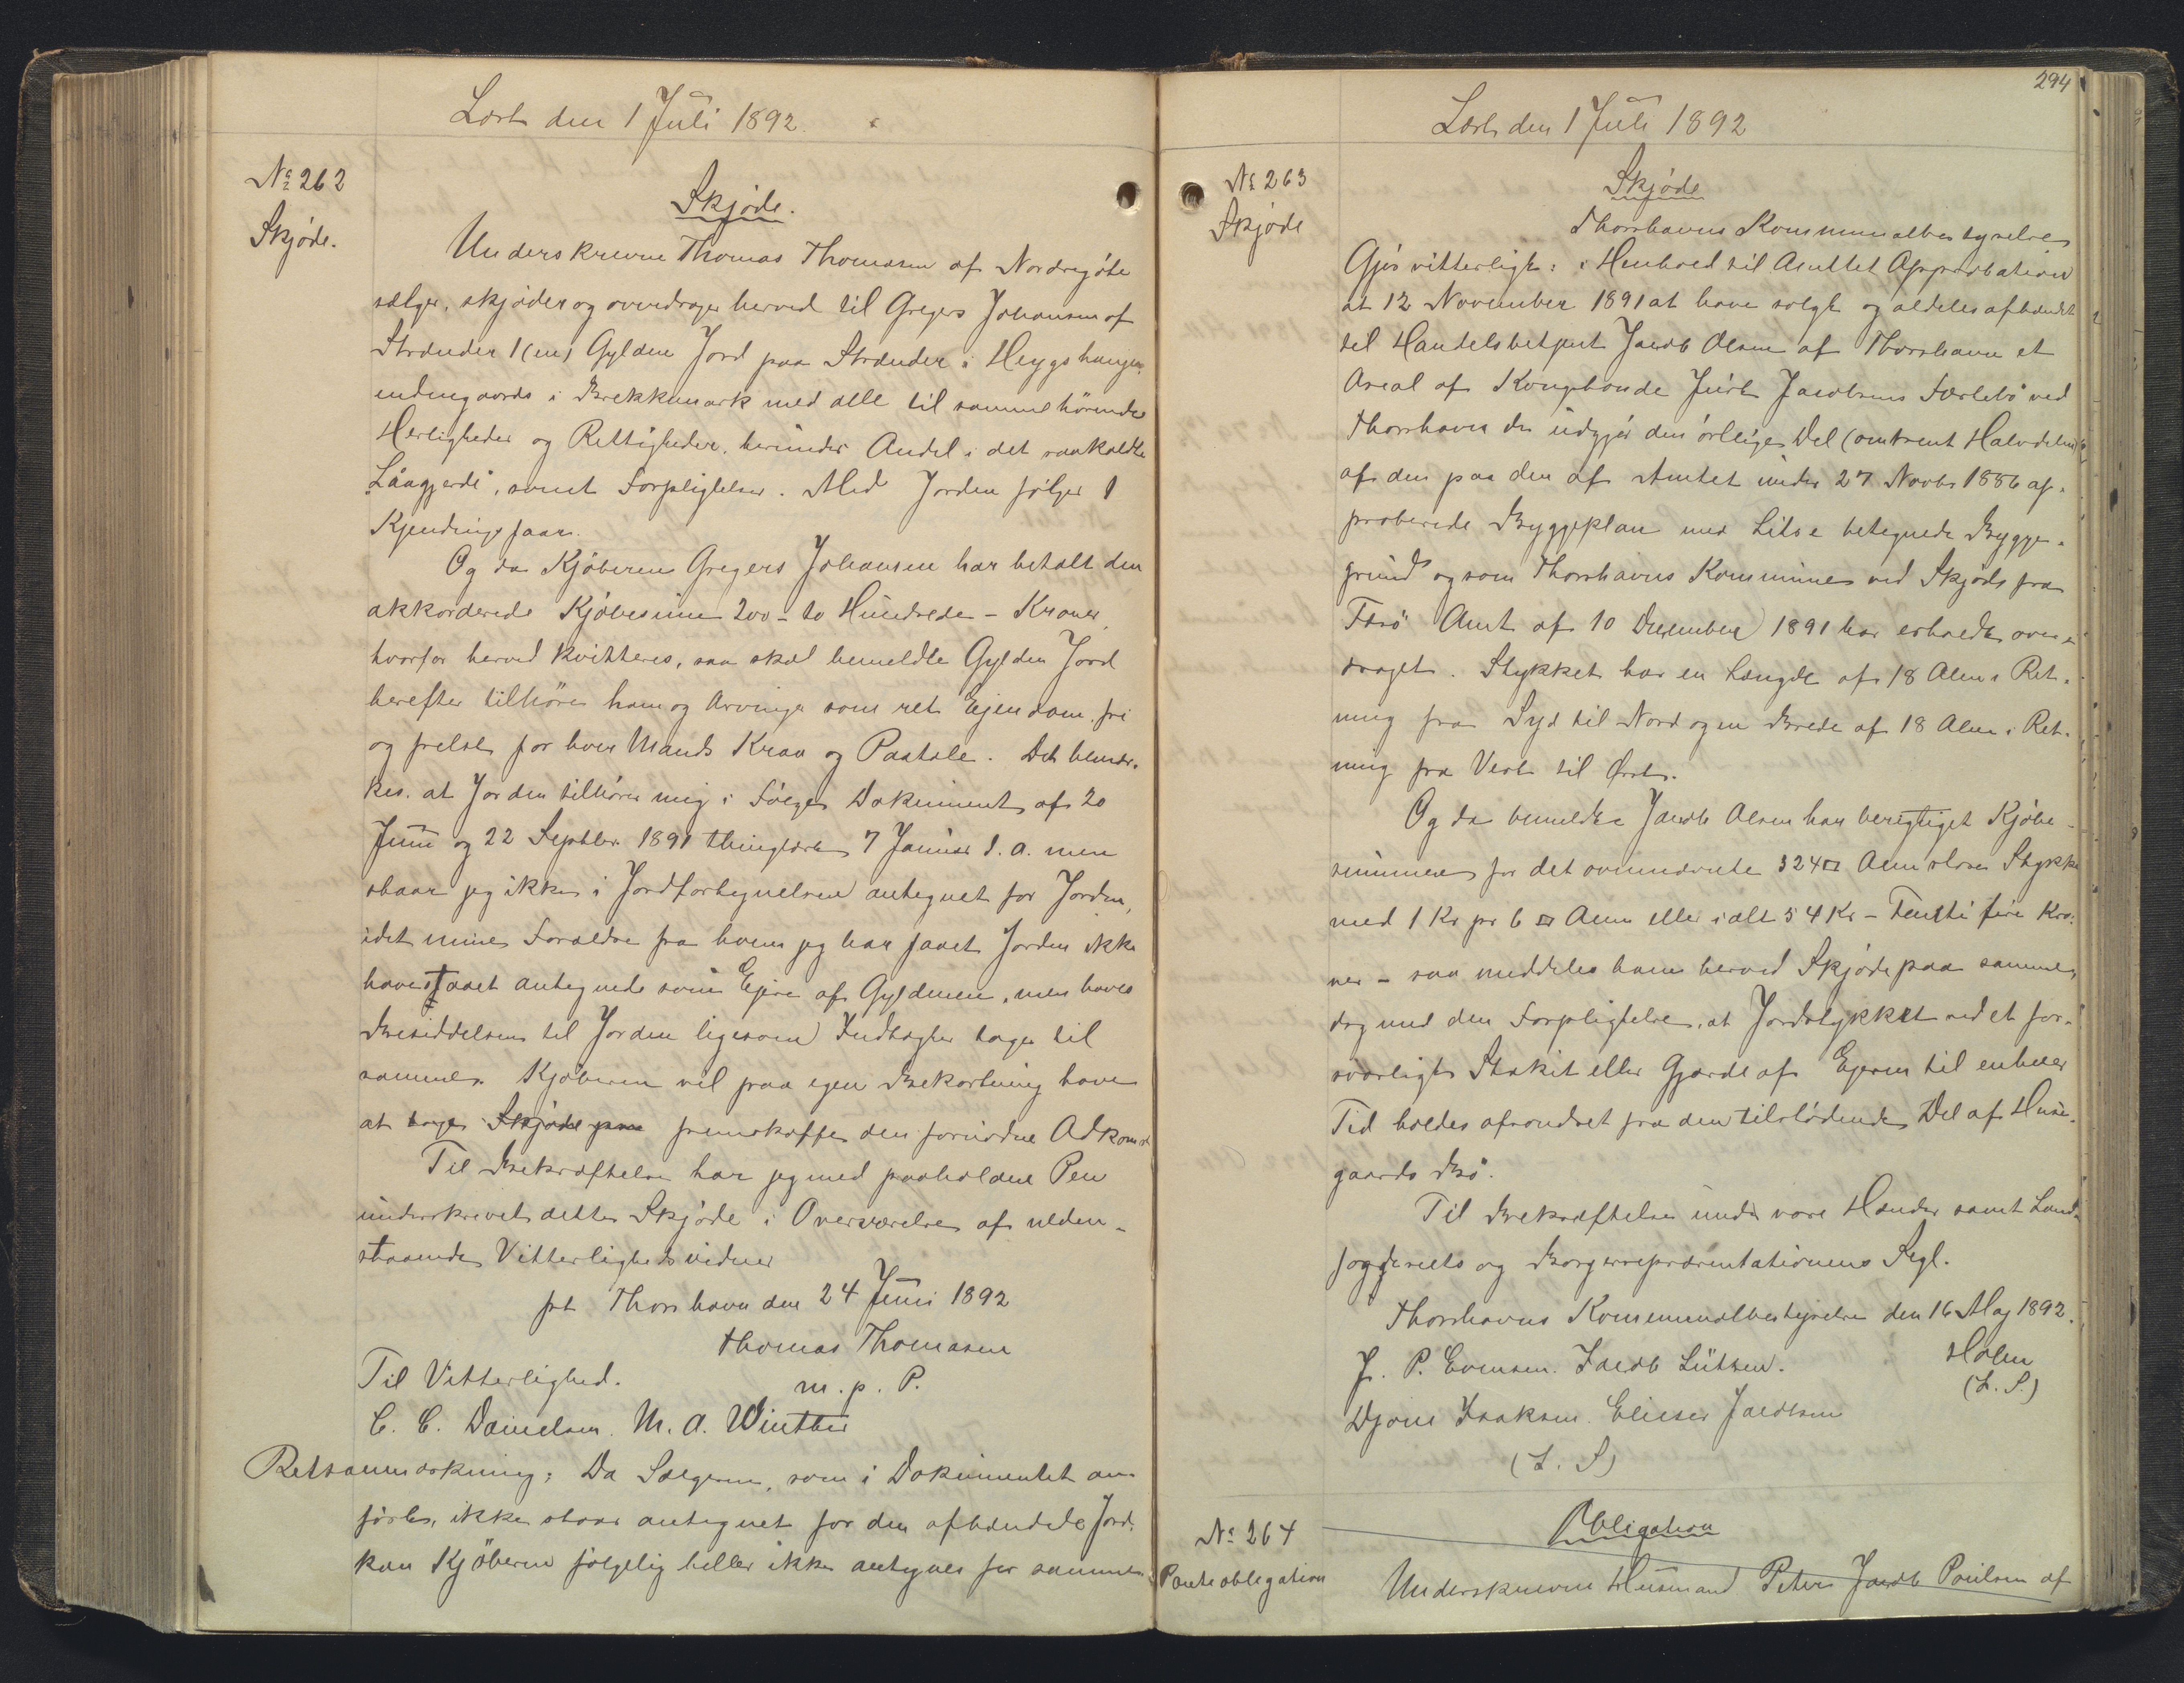 Læst den 1 Juli 1892.
No 262
Skjøde.
Skjøde.
Underskrevne Thomas Thomasen af Nordregöte
sælger, skjöder og overdrager herved til Gregers Johansen af
Strænder 1 (en) Gylden Jord paa Strænder i Heygshaugen
indengaards i Brekkumark med alle til samme hörende
Herligheder og Rettigheder, herunder Andel i det saakaldte
"Láagjerdi", samt Forpligtelser. Med Jorden følger 1
Kjendingsfaar.
Og da Kjöberen Gregers Johansen har betalt den
akkorderede Kjöbesum 200 - to Hundrede - Kroner,
hvorfor herved kvitteres, saa skal bemeldte Gylden Jord
herefter tilhöre ham og Arvinger som ret Ejendom, fri
og frelst for hver Mands Krav og Paatale. Det bemær-
kes, at Jorden tilhörer mig i Følge Dokument af 20
Juni og 22 Septbr. 1891 thinglæst 7 Januar d. a. men
staar jeg ikke i Jordfortegnelsen antegnet for Jorden,
idet mine Forældre fra hvem jeg har faaet Jorden ikke
have staaet antegnede som Ejere af Gyldenen, men haves
Besiddelsen til Jorden ligesom Indtægter tages til
samme. Kjøberen vil paa egen Bekostning have
at tage Skjøde paa fremskaffe den fornødne Adkomst
Til Bekræftelse har jeg med paaholdent Pen
underskrevet dette Skjøde i Overværelse af neden-
staaende Vitterlighedsvidner
pt Thorshavn den 24 Juni 1892
Thomas Thomasen
m. p. P.
Til Vitterlighed.
C. C. Danielsen. M. A. Winther
Retsanmærkning: Da Sælgeren, som i Dokumentet an-
førte, ikke staar antegnet for den afhændede Jord,
kan Kjöberen følgelig heller ikke antegnes for samme.
294
Læst den 1 Juli 1892
No 263
Skjøde
Skjøde
Thorshavns Kommunalbestyrelse
Gjör vitterligt: i Henhold til Amtets Approbation
at 12 November 1891 at have solgt og aldeles afhændet
til Handelsbetjent Jacob Olsen af Thorshavn et
Areal af Kongsbonde Jacobsens Fæstebö ved
Thorshavn der udgjør den östlige Del (omtrent Halvdelen)
af den paa den af Amtet under 27 Novbr 1886 ap-
proberede Byggeplan med Litr e betegnede Bygge-
grund og som Thorshavns Kommune ved Skjøde fra
Færö Amt af 10 December 1891 har erholdt over-
draget. Stykket har en Længde af 18 Alen i Ret-
ning fra Syd til Nord og en Brede af 18 Alen i Ret-
ning fra Vest til Øst.
Og da bemeldte Jacob Olsen har berigtiget Kjøbe-
summen for det ovennævnte 324 □ Alen store Stykke
med 1 Kr pr 6 □ Alen eller i alt 54 Kr - Femti fire Kro-
ner - saa meddeles ham herved Skjøde paa samme,
dog med den Forpligtelse, at Jordstykket ved et for-
svarligt Stakit eller Gjærde af Ejeren til enhver
Tid holdes afsondret fra den tilstödende Del af Huse-
gaards Bö.
Til Bekræftelse under vore Hænder samt Land-
fogderiets og Borgerrepræsentationens Segl.
Thorshavns Kommunalbestyrelse den 16 Maj 1892.
Holm
(L. S.)
J. P. Evensen. Jacob Lützen.
Djoni Isaksen. Elieser Jacobsen
(L. S)
No 264
Panteobligation
Obligation
Underskrevne Husmand Peter Jacob Poulsen af